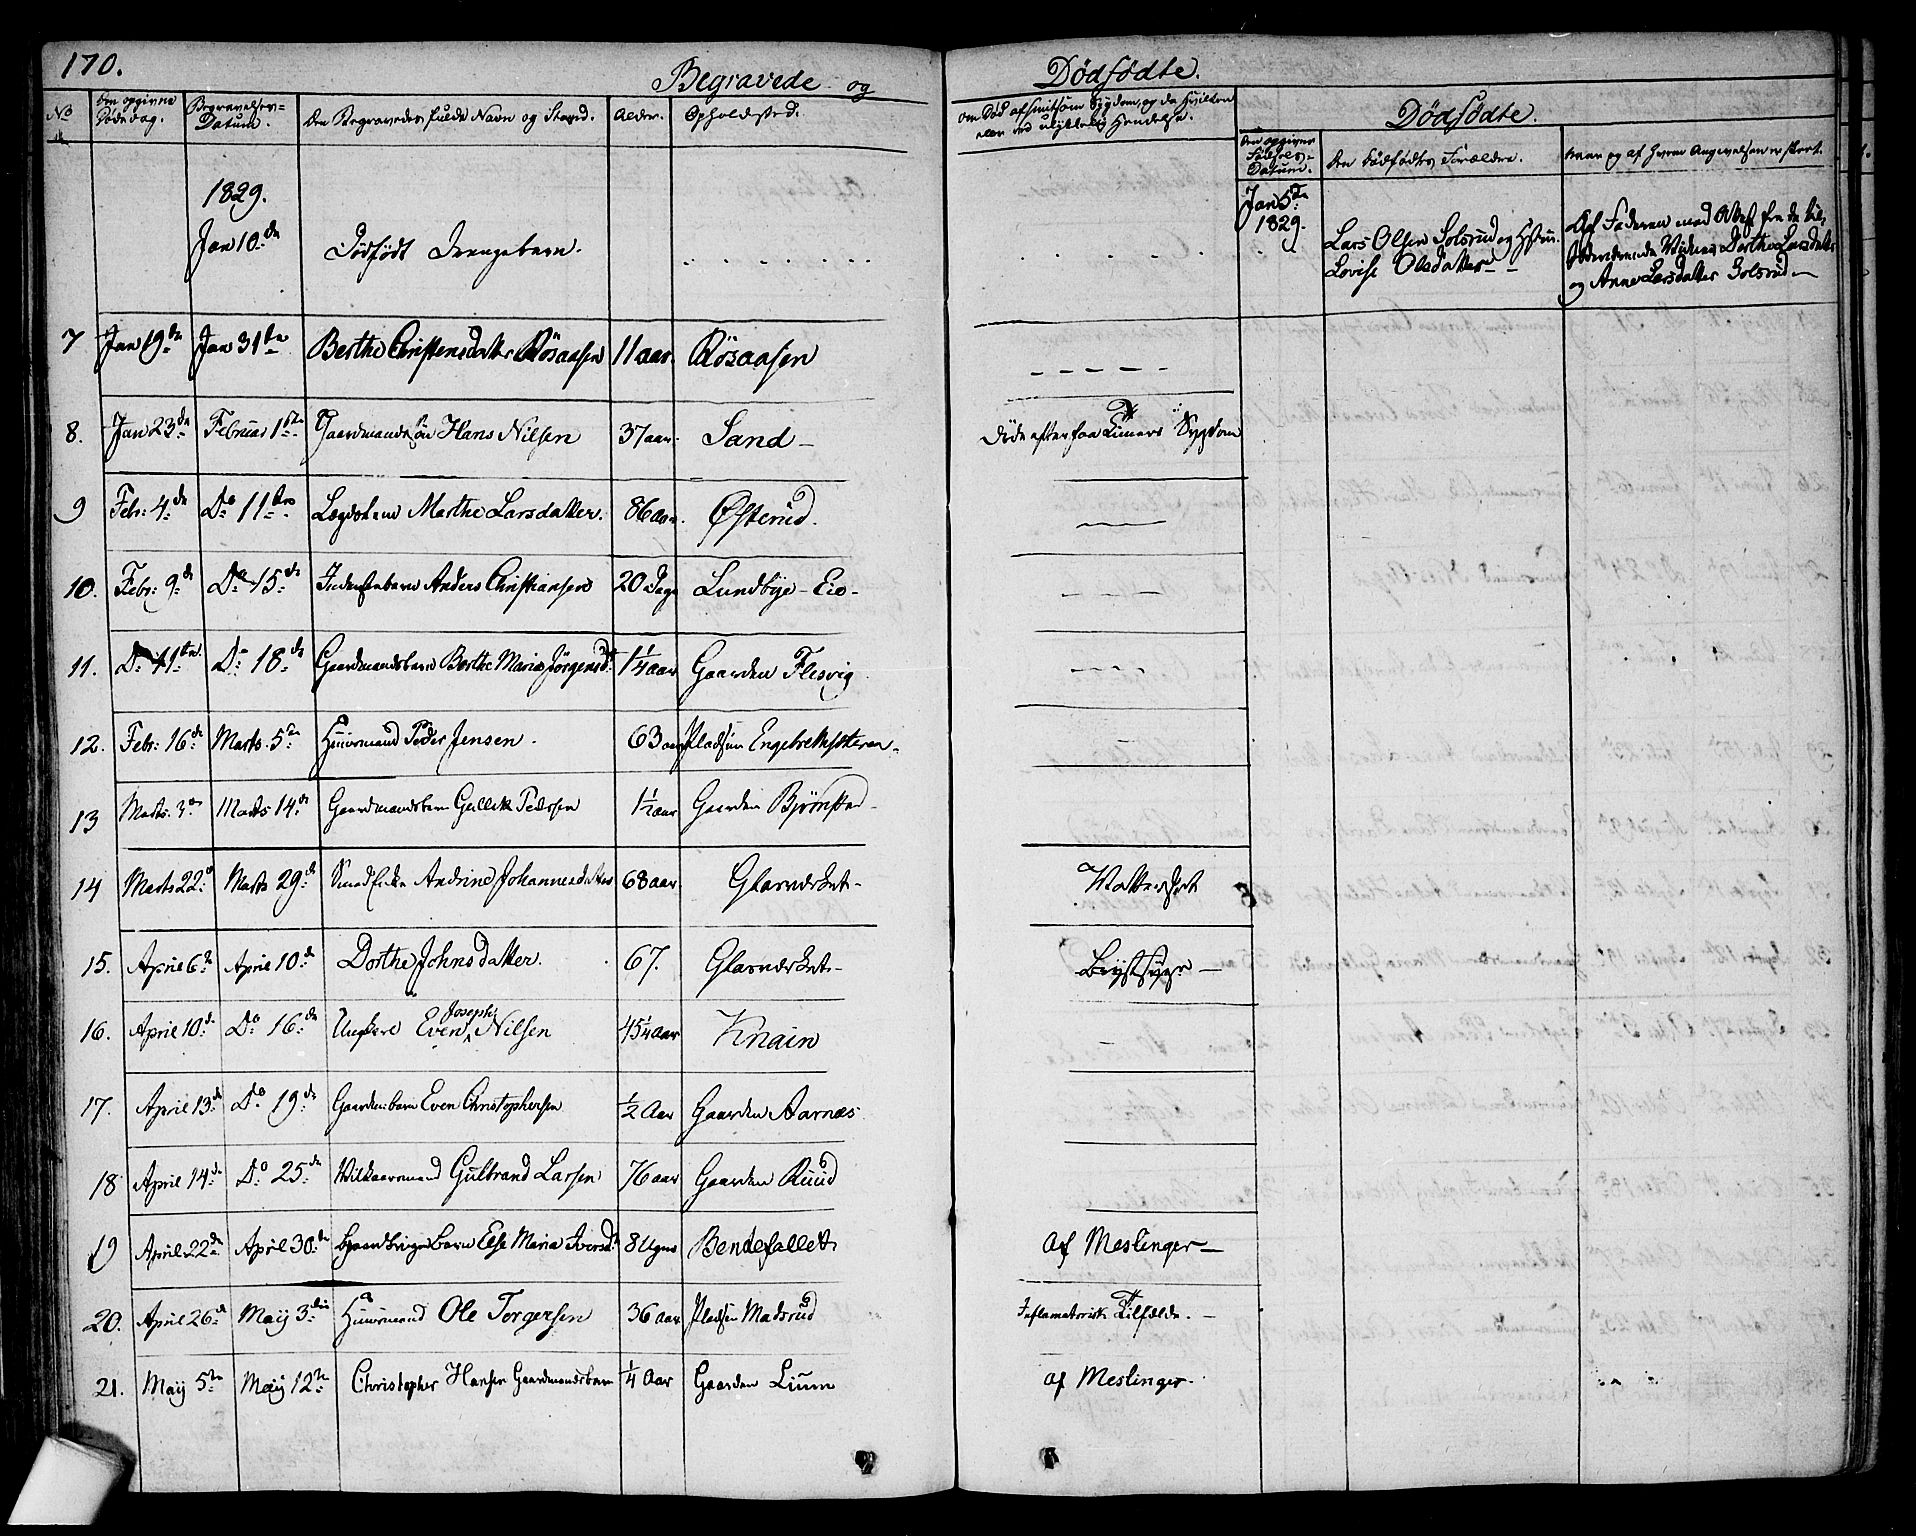 170.
Begravede og Dødfødte.
No
Den opgivne Dødsdag.
Begravelses-Datum.
Den Begravedes fulde Navn og Stand.
Alder.
Opholdssted.
om Død af smitsom Sygdom, og da hvilken
eller ved ulykkelig Hændelse.
Dødfødte.
Den opgivne Fødsels-Datum.
Den Dødfødtes Forældre.
naar og af hvem Angivelsen er skeet.
1829.
Jan 10de Dødfødt Drengebarn.
Jan 5te 1829.
Lars Olsen Solsrud og Hstru
Lovise Olsdatter
Af Faderen med Attest fra de til-
stedeværende Vidner Dorthe Larsdatter
og Anne Larsdatter Solsrud
7 Jan 19de Jan 31te Berthe Christensdatter Røsaasen 11 aar. Røsaasen
8. Jan 23de Februar 1ste Gaardmandssøn Hans Nilsen 37 aar. Sand - Døde efter faa Timers Sygdom
9 Febr: 4de Do 11te Lægdslem Marthe Larsdatter. 86 aar. Østerud.
10. Febr: 9de Do 15de Anders Christiansen 20 Dage Lundbye - Eie -
11. Do 11te Do 18de Gaardmandsbarn Berthe Maria Jørgensd: 1 1/4 aar Gaarden Flesvig
12. Febr: 16de Marts. 5te Huusmand Peder Jensen. 63 aar Pladsen Engebrethsteren
13 Marts. 3de Marts 14de Gaardmandsbarn Gullik Pedersen 1 1/2 aar Gaarden Bjørnstad
14 Marts 22de Marts 29de Andrine Johannesdatter 68 aar Glasværket - Vattersot
15. April 6te April 10de Dorthe Johnsdatter. 67. Glasværket - Brystsyge
16. April 10de Do 16de Ungkarl Even Joseph Nilsen 45 1/4 aar Knain
17. April 13de Do 19de Gaardm:barn Even Christophersen 1/2 Aar Gaarden Aarnæs
18 April 14de Do 25de Vilkaarsmand Gulbrand Larsen 76 aar Gaarden Ruud
19 April 22de April 30de Gaardbrugerbarn Else Maria Iversd: 8 Uger Bendefallet Af Meslinger
20. April 26de Maij 3die Huusmand Ole Torgersen 36 aar Pladsen Madsrud Inflamatorisk Tilfælde.
21. Maij 5te Maij 12te Christopher Hansen Gaardmandsbarn 1/4 Aar Gaarden Lium af Meslinger.